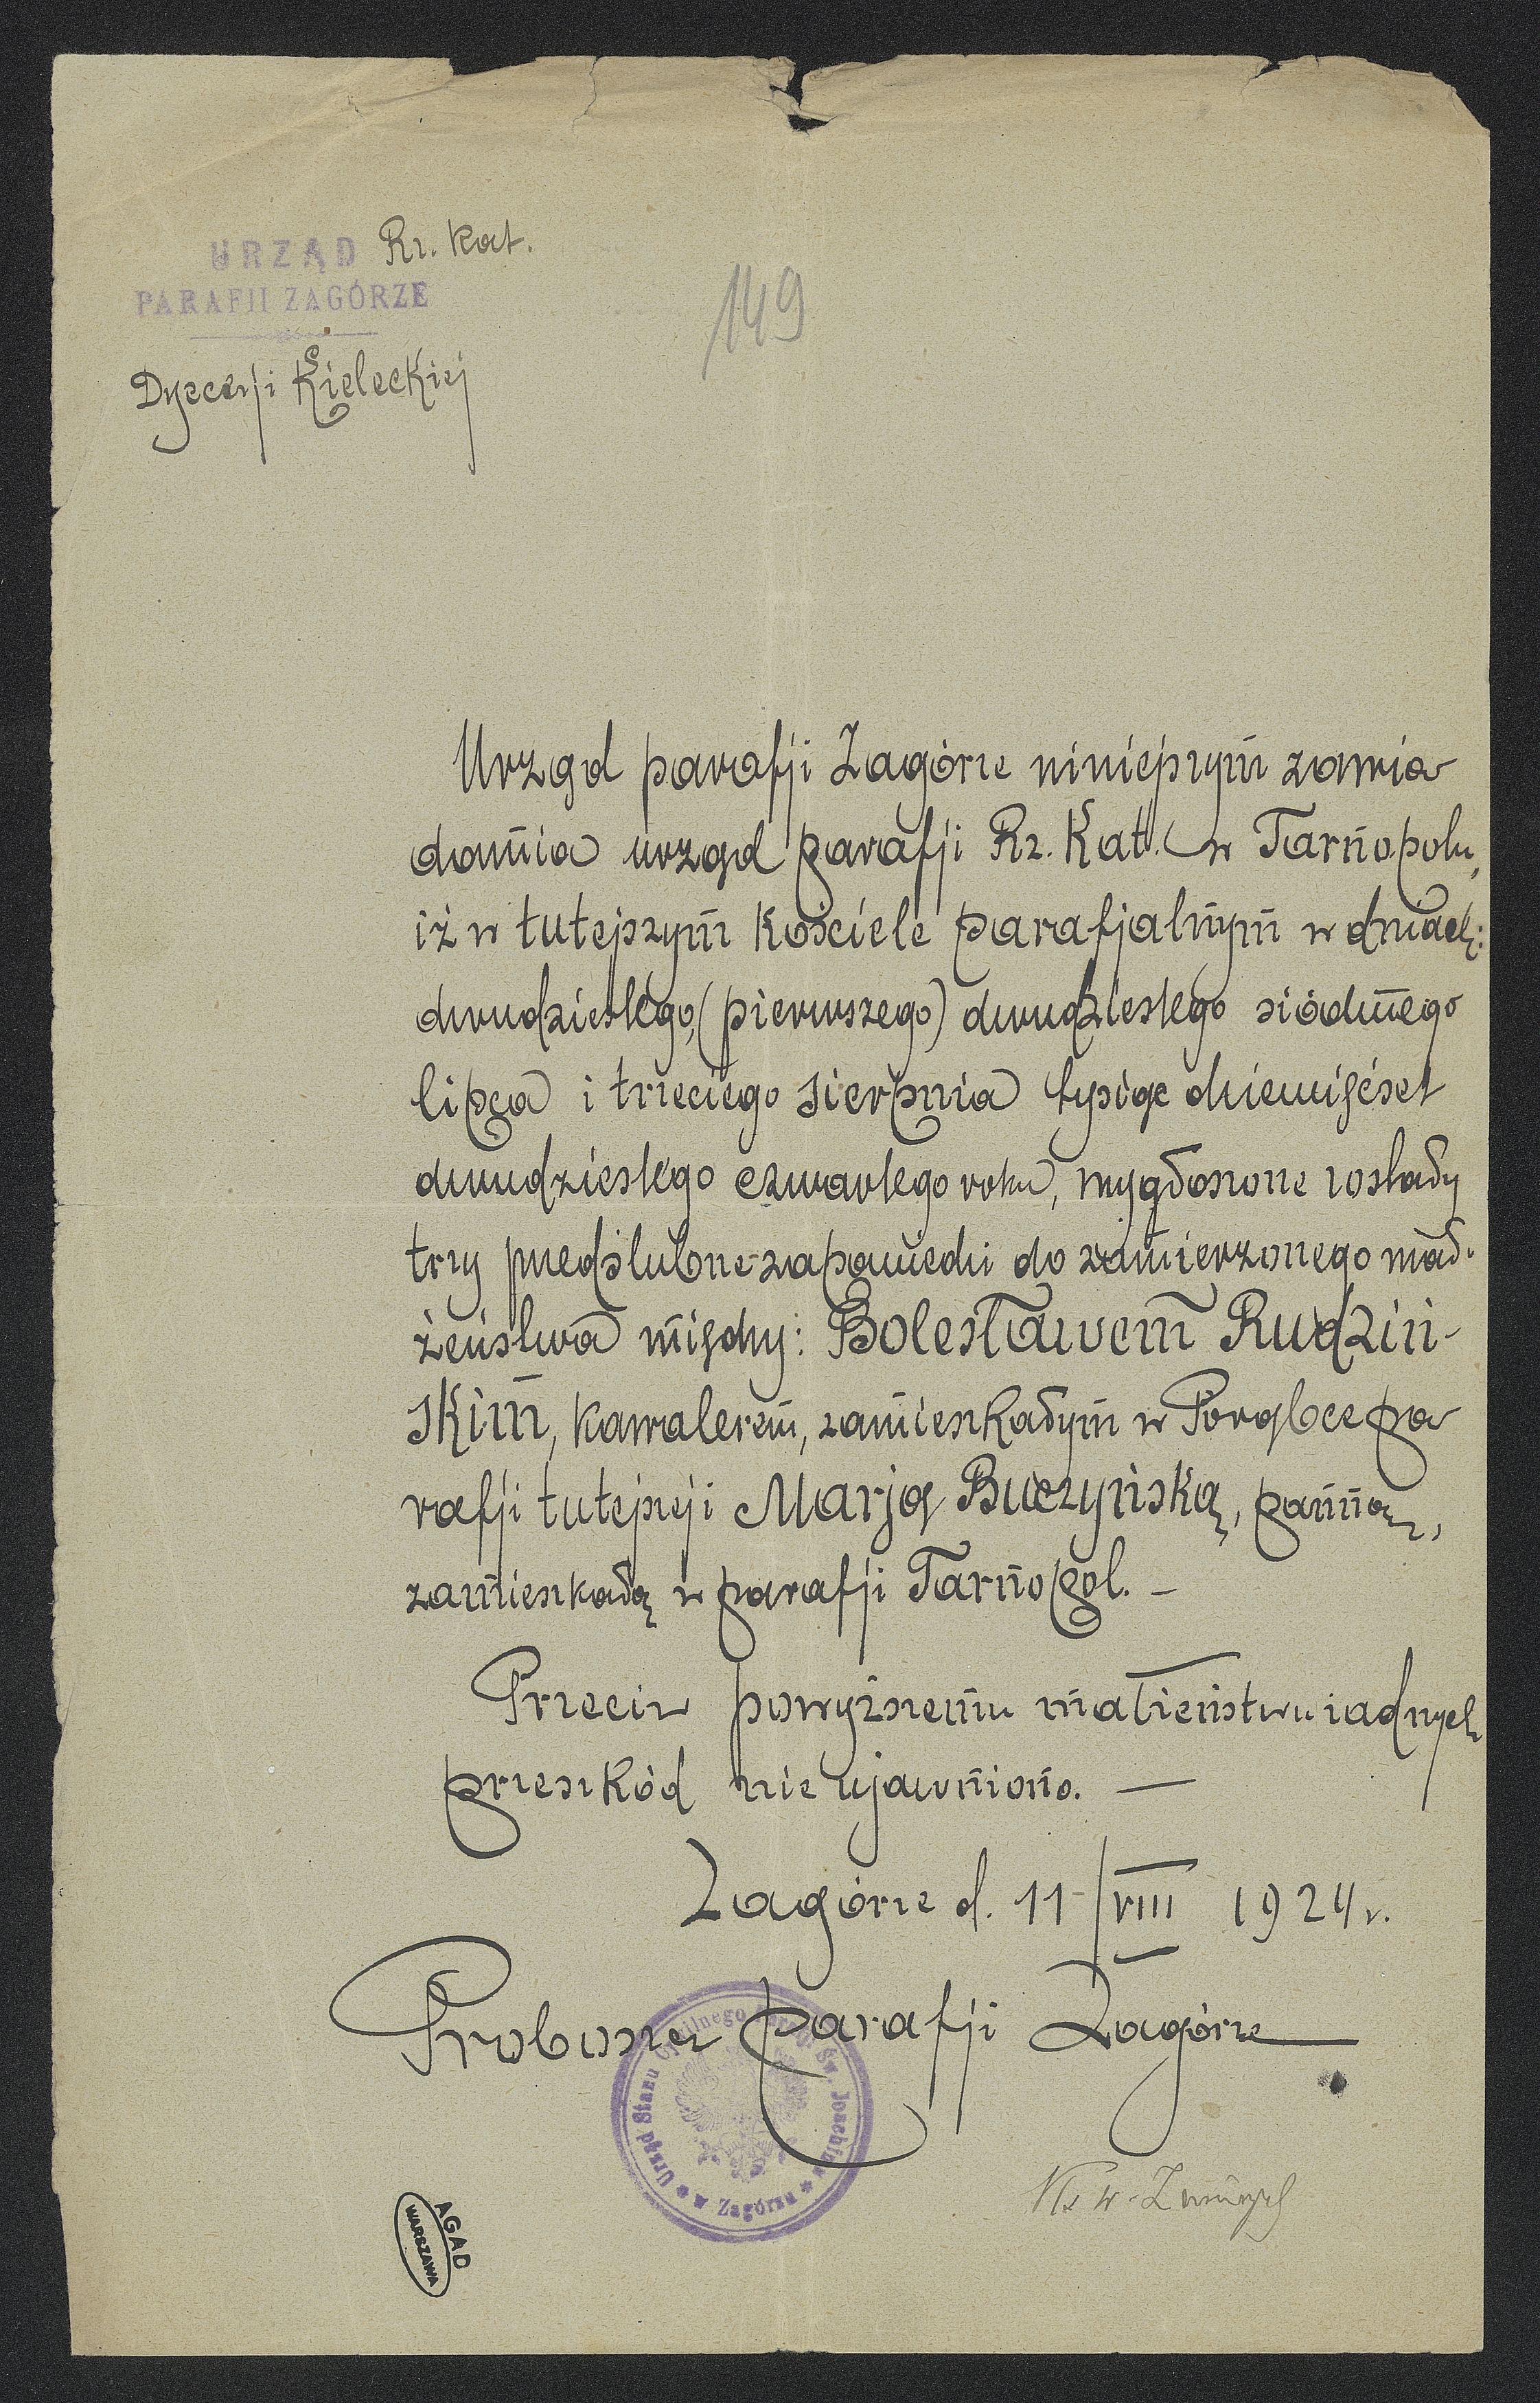 URZĄD Rz. Kat.
PARAFII ZAGÓRZE
149
Dyecezji Kieleckiej
Urząd parafji Zagórze niniejszym zawia
damia urząd parafji Rz. Kat. w Tarnopolu,
iż w tutejszym Kościele parafjalnym w dniach:
dwudziestego, (pierwszego) dwudziestego siódmego
lipca i trzeciego sierpnia tysiąc dziewięćset
dwudziestego czwartego roku, wygłoszone zostały
trzy przedślubne zapowiedzi do zamierzonego mał-
żeństwa między: Bolesławem Rudziń-
skim, kawalerem, zamieszkałym w Porąbce pa
rafji tutejszej i Marją Buczyńską, panną,
zamieszkałą w parafji Tarnopol. —
Przeciw powyższemu małżeństwu żadnych
przeszkód nie ujawniono. —
Zagórze d. 11/VIII 1924 r.
Proboszcz parafji Zagórze
Urząd Stanu Cywilnego Św. Joachima w Zagórzu
Ks W.
AGAD
WARSZAWA